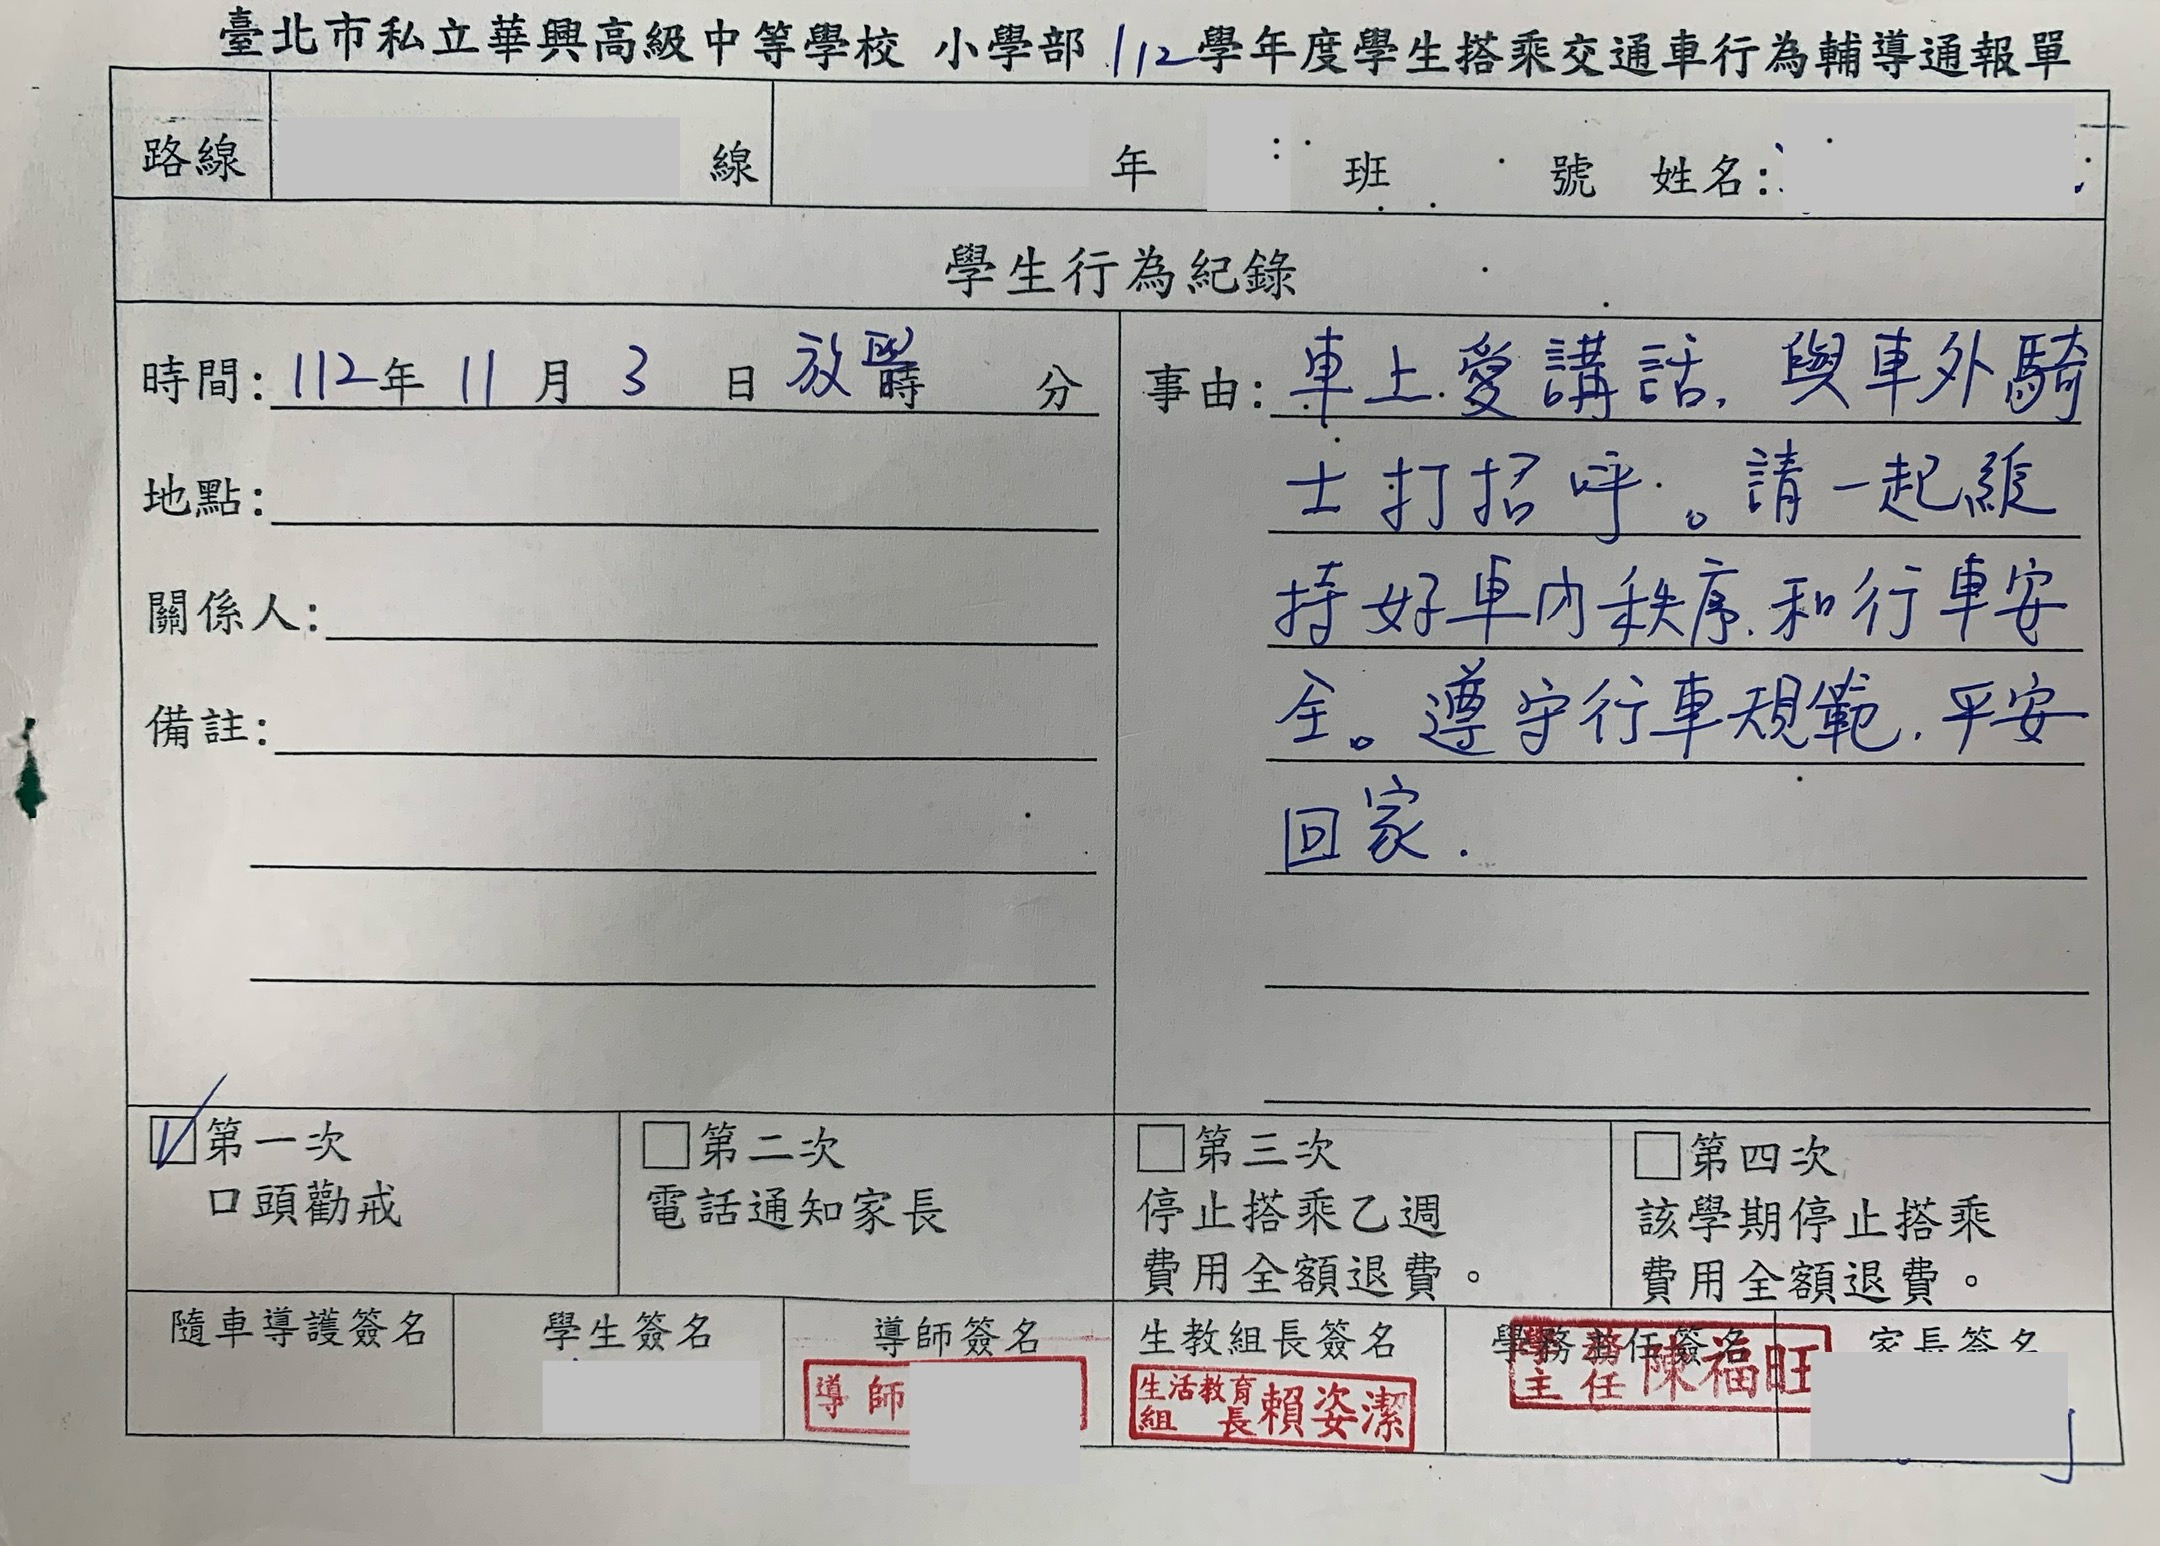 臺北市私立華興高級中等學校 小學部 112學年度學生搭乘交通車行為輔導通報單
路線 線 年 班 號 姓名:
學生行為紀錄
時間: 112年 11 月 3 日 放學時 分
地點:
關係人:
備註:
事由: 車上愛講話,與車外騎
士打招呼。請一起維
持好車內秩序,和行車安
全。遵守行車規範,平安
回家.
第一次
口頭勸戒
第二次
電話通知家長
第三次
停止搭乘乙週
費用全額退費。
第四次
該學期停止搭乘
費用全額退費。
隨車導護簽名
學生簽名
導師簽名
導師
生教組長簽名
生活教育
組長 賴姿潔
學務主任簽名
學務
主任 陳福旺
家長簽名